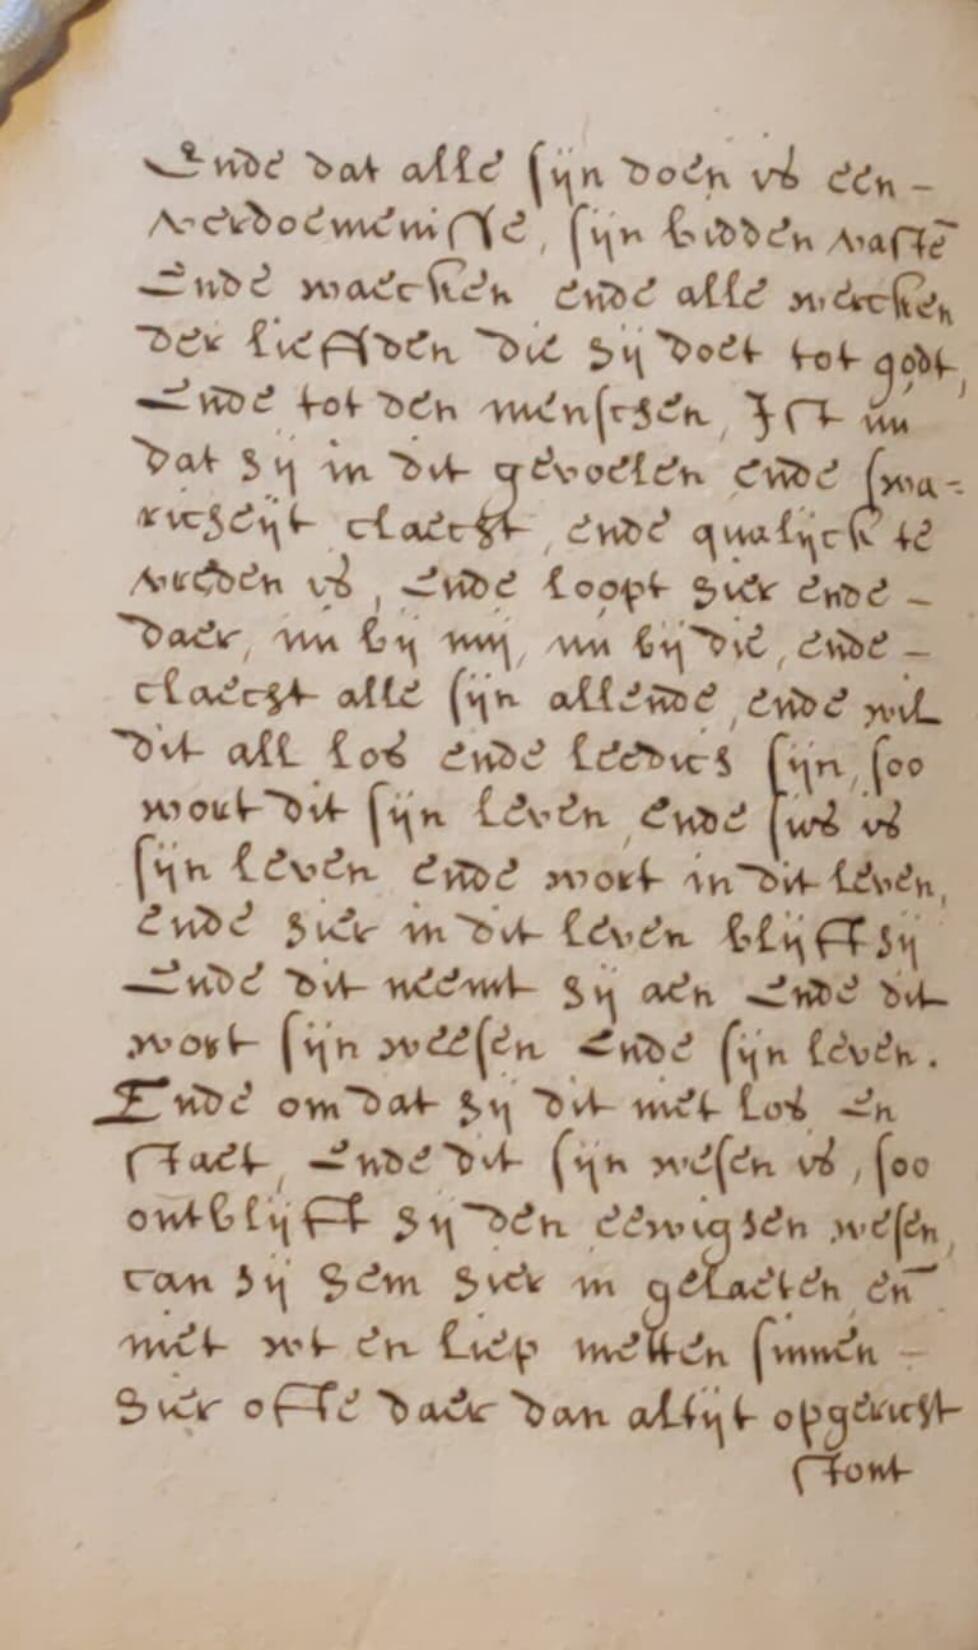 Ende dat alle sijn doen is een –
verdoemenisse, sijn bidden vastē
Ende waecken ende alle wercken
der lieffden die hij doet tot godt,
Ende tot den menschen, Ist nu
dat hij in dit gevoelen ende swa=
richeijt claecht, ende qualijck te
vreden is, Ende loopt hier ende –
daer, nu bij mij, nu bij die, ende –
claecht alle sijn allende, ende wil
dit all los ende leedich sijn, soo
wort dit sijn leven ende sus is
sijn leven ende wort in dit leven,
ende hier in dit leven blijfft hij
Ende dit neemt hij aen Ende dit
wort sijn weesen Ende sijn leven.
Ende om dat hij dit niet los En
staet, Ende dit sijn wesen is, soo
ontblijfft hij den eewighen wesen,
can hij hem hier in gelaeten en̄
niet wt en liep metten sinnen –
hier offte daer dan altijt opgericht
stont